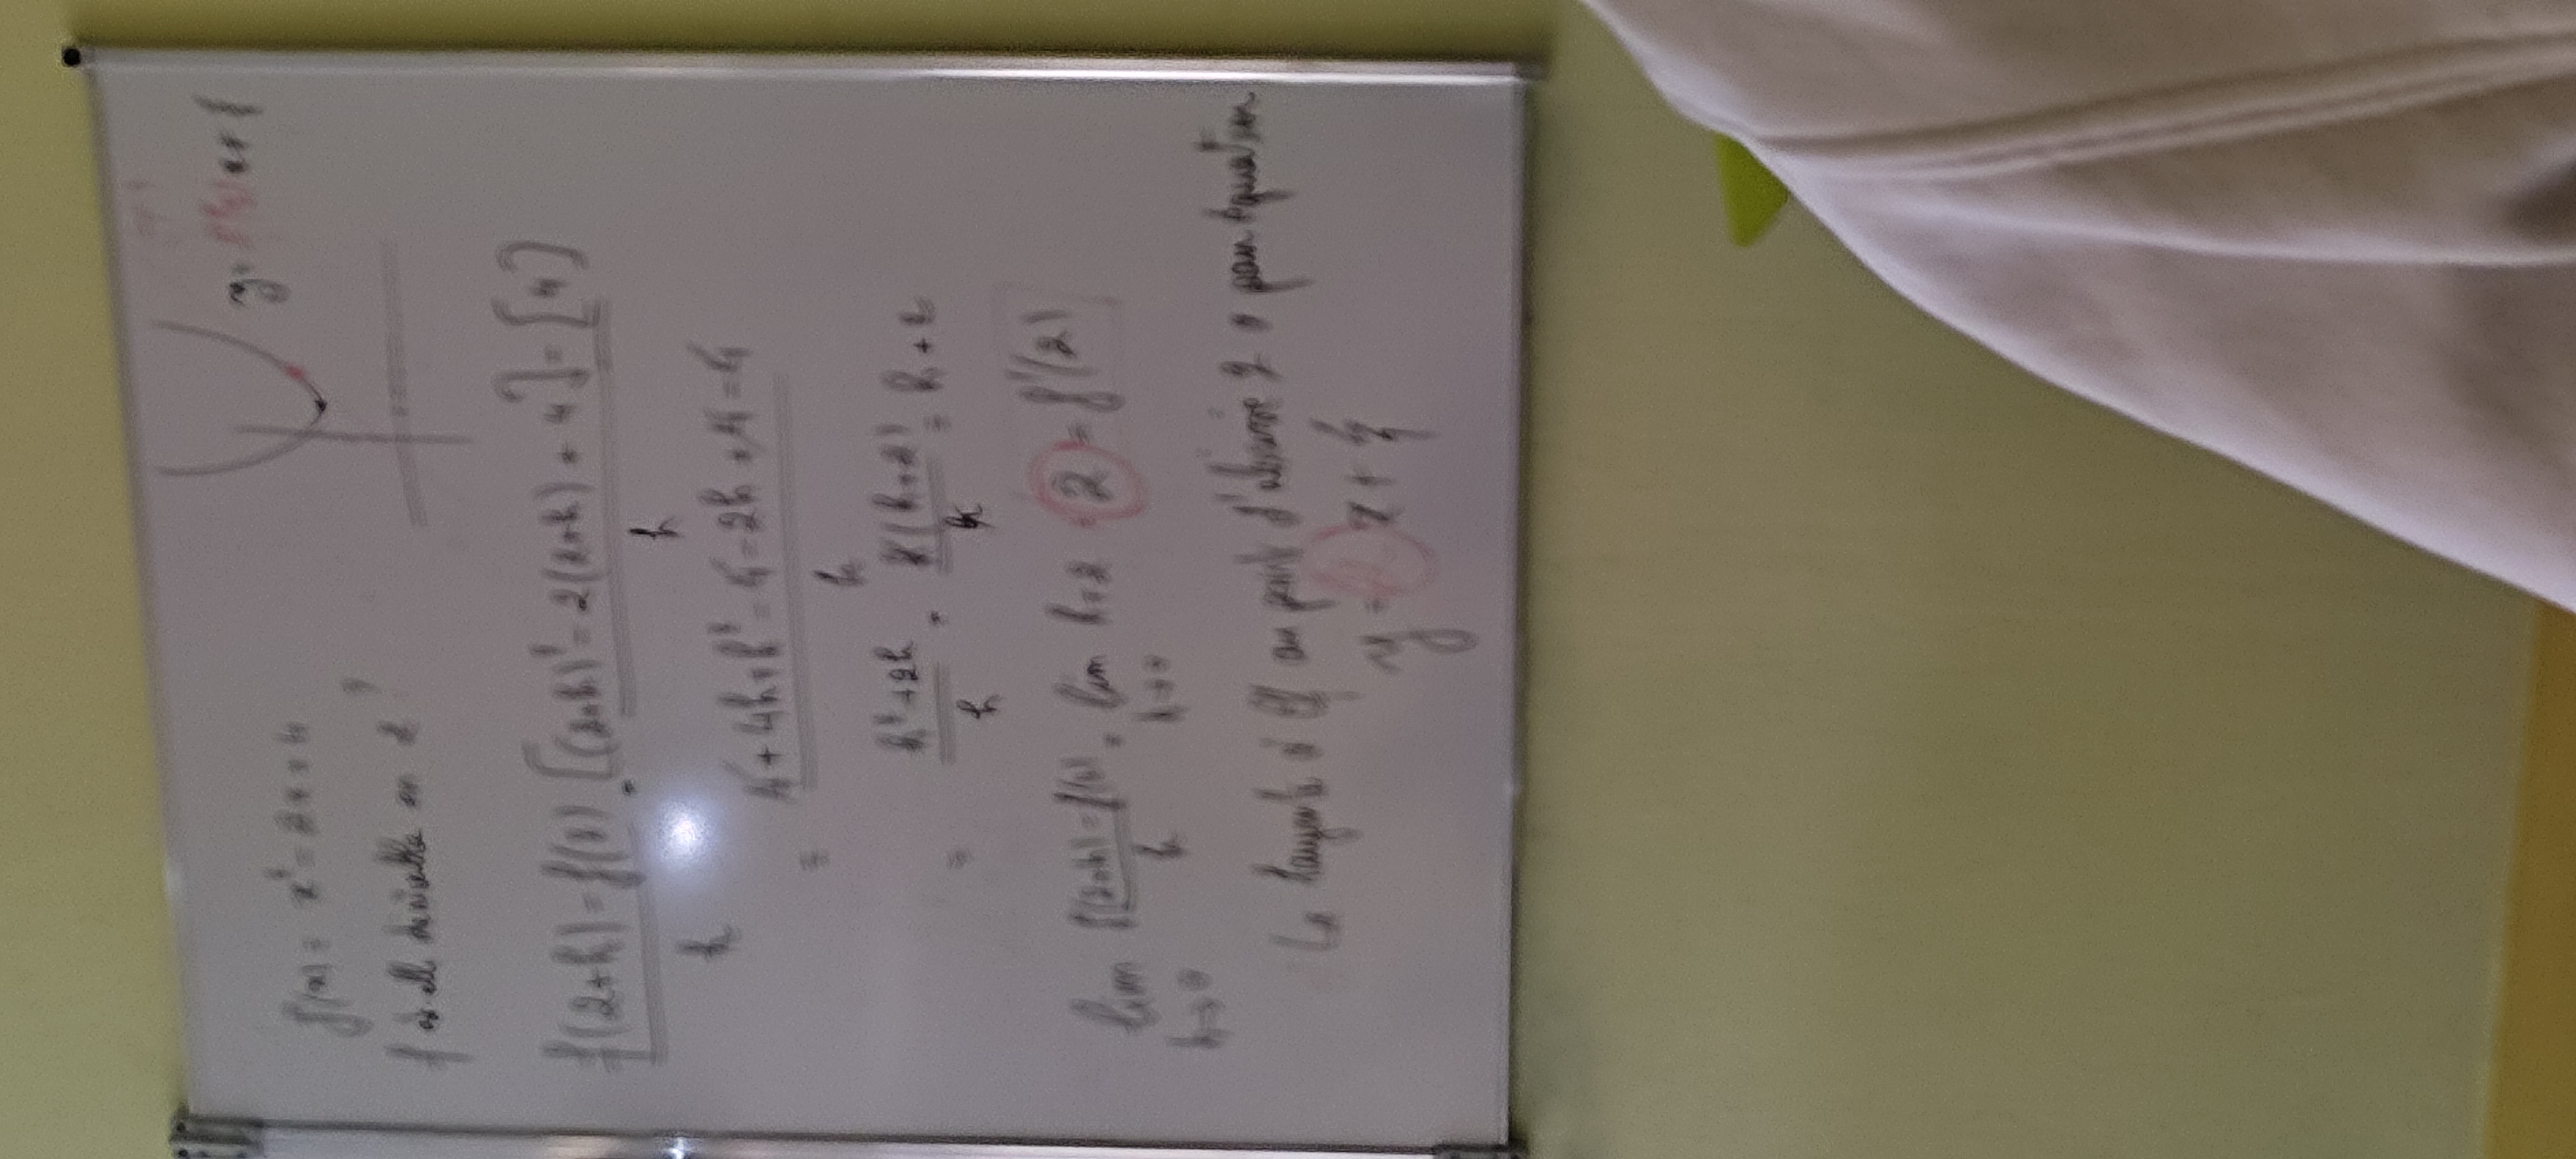 f(x) = x² - 2x + 4
f est-elle dérivable en 2 ?
y = f'(2) x + p
f(2+h) - f(2) / h = [(2+h)² - 2(2+h) + 4] - [4] / h
= 4 + 4h + h² - 4 - 2h + 4 - 4 / h
= h² + 2h / h = h(h+2) / h = h + 2
lim h→0 f(2+h) - f(2) / h = lim h→0 h+2 = 2 = f'(2)
La tangente à Cf au point d'abscisse 2 a pour équation
y = 2 x + p